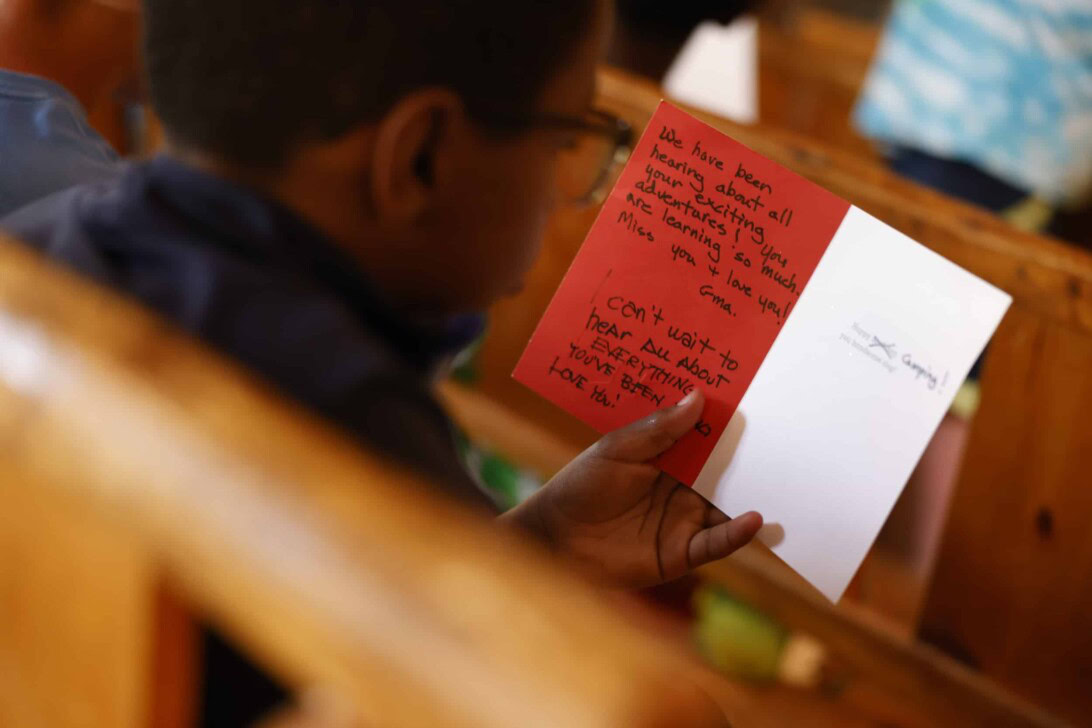 We have been
hearing about all
your exciting
adventures! You
are learning so much.
Miss you & love you!
Gma.
Can't wait to
hear All About
EVERYTHING
YOU'VE BEEN
LOVE YOU!
Camping!